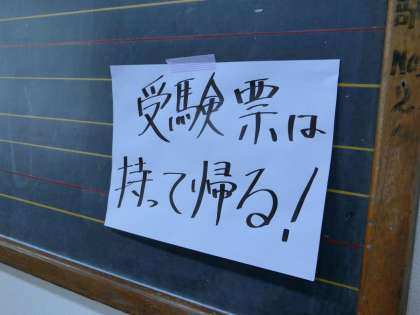 受験票は
持って帰る!
No
2